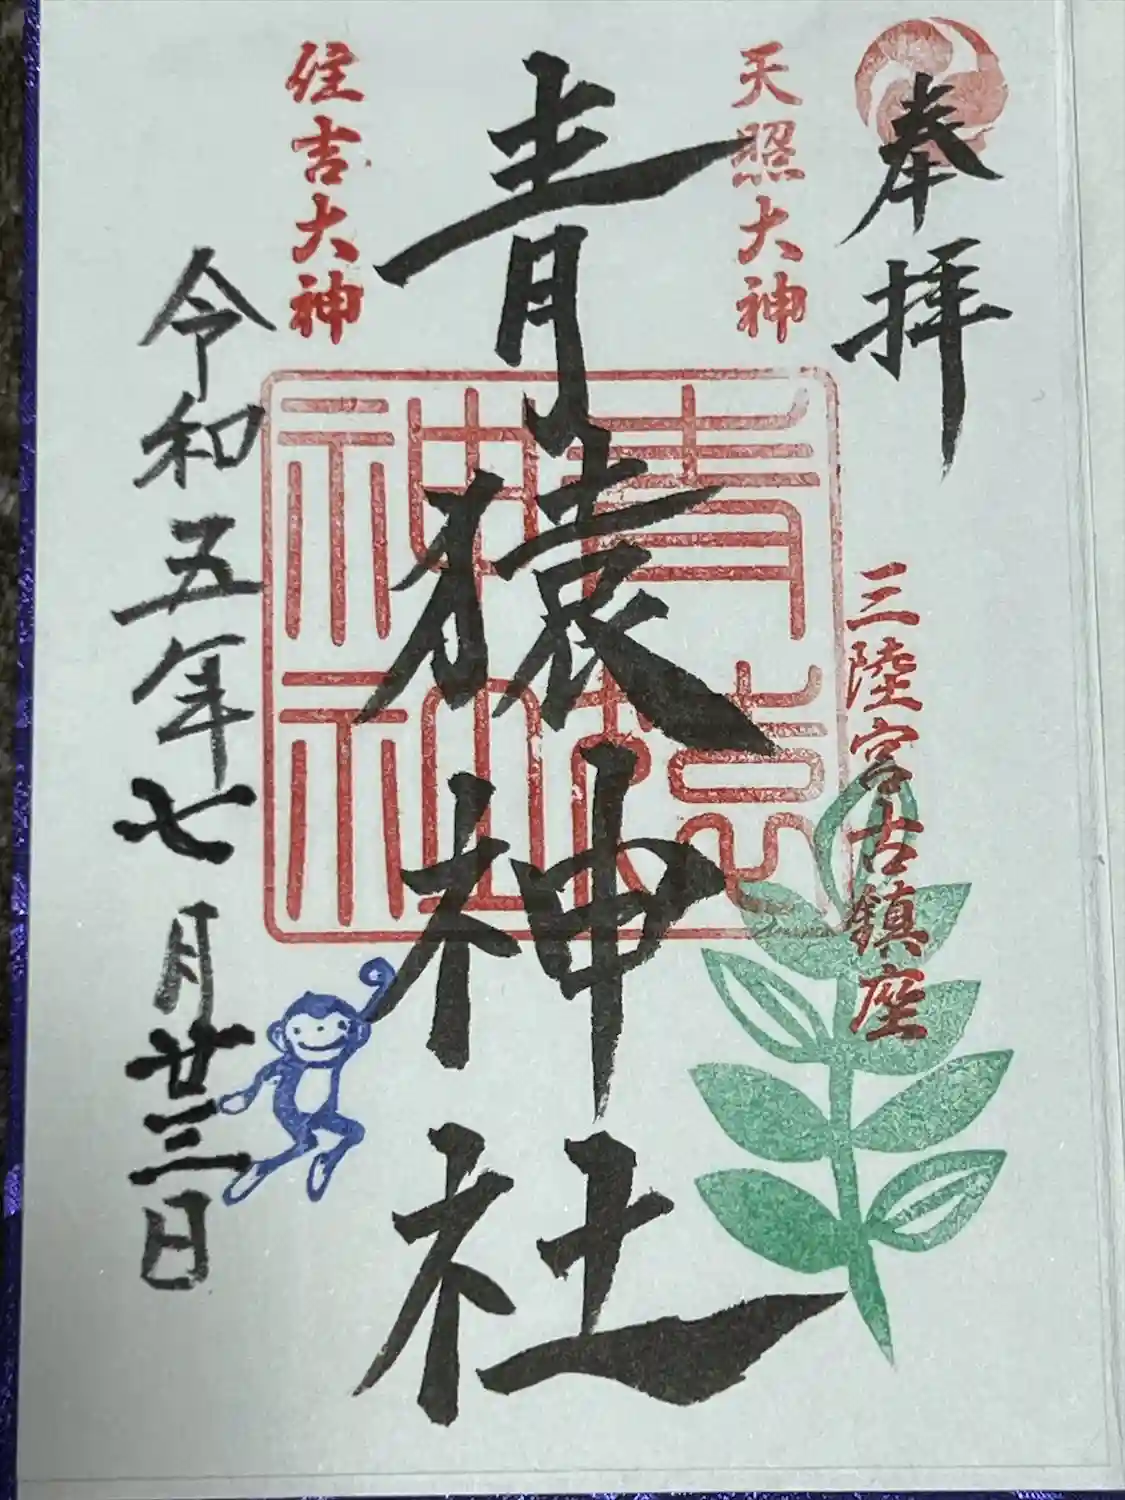 奉拝
三陸宮古鎮座
天照大神
青猿神社
住吉大神
令和五年七月廿三日